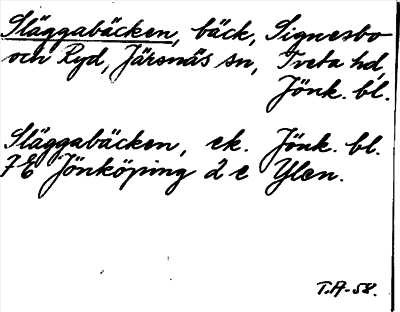 Släggabäcken, bäck, Signesbo
och Ryd, Järsnäs sn, Tveta hd,
Jönk. bl.
Släggabäcken, ek. Jönk. bl.
7 E Jönköping 2 e Ylen.
T.A-58.